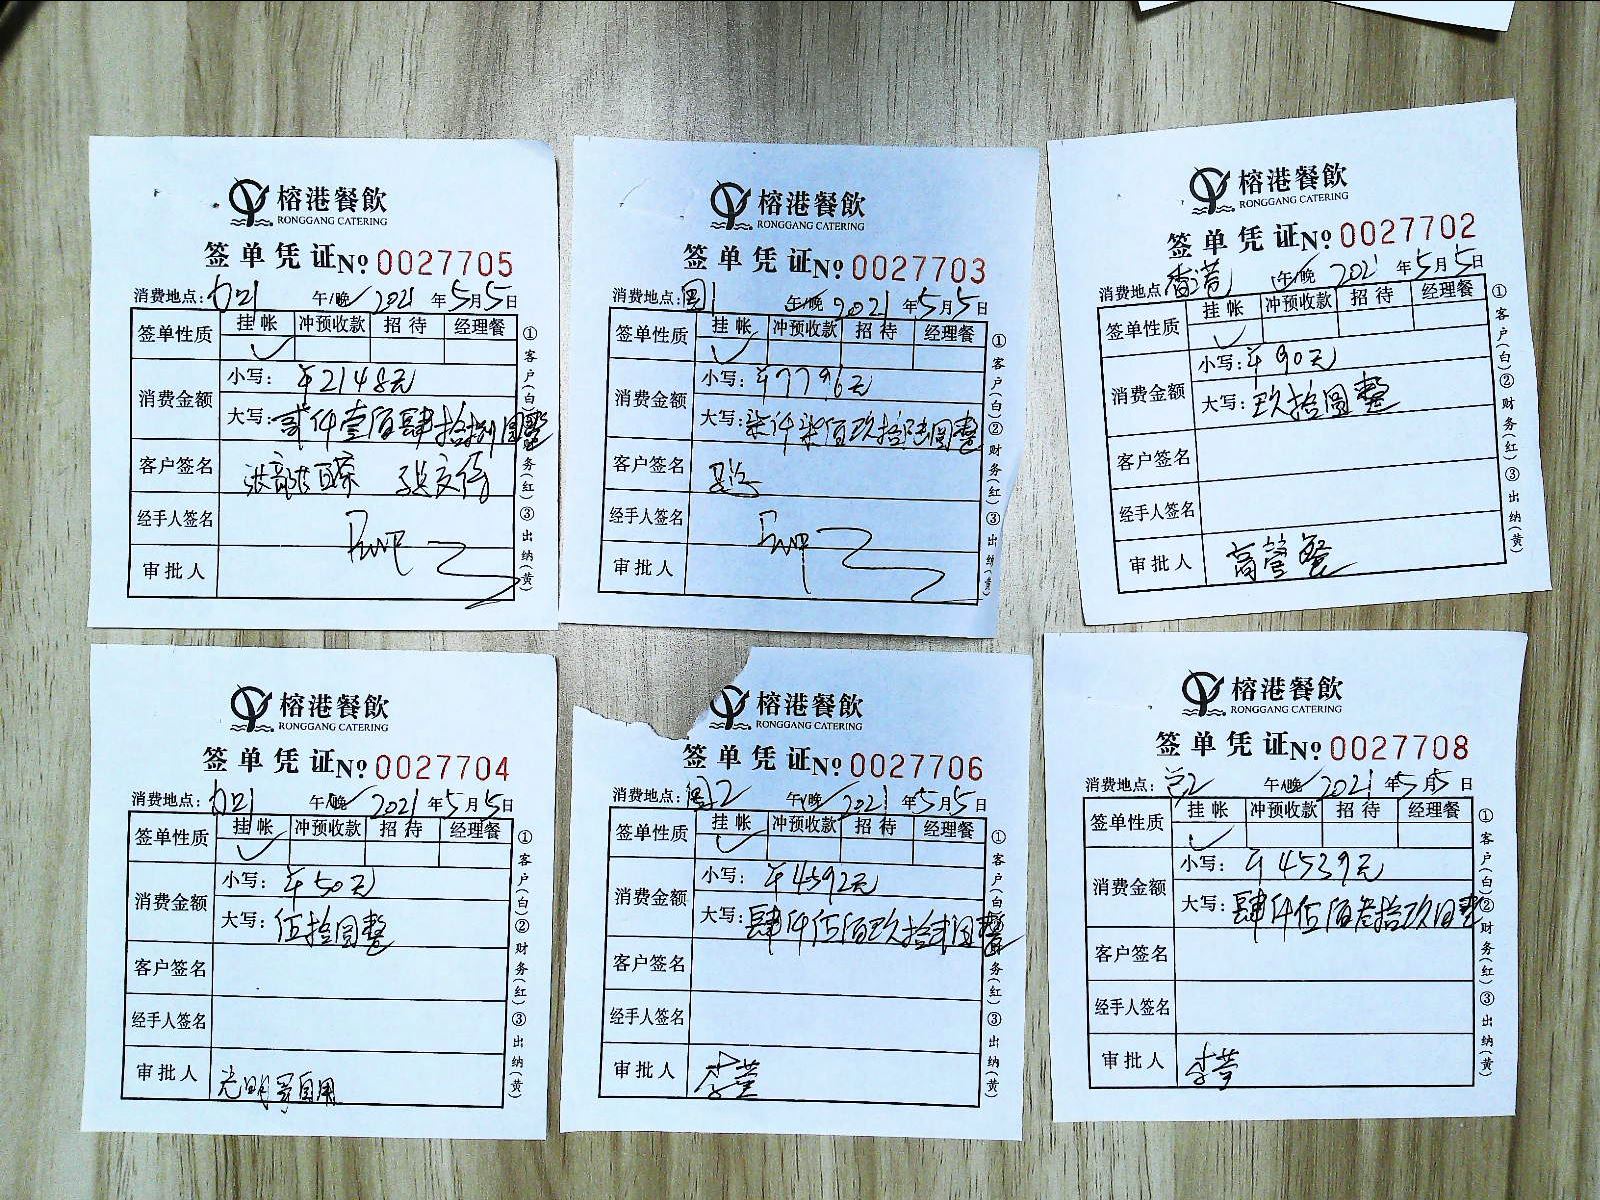 榕港餐飲
RONGGANG CATERING
签单凭证 № 0027705
消费地点： 午/晚 2021年5月5日
签单性质 挂帐 冲预收款 招待 经理餐
✓
消费金额 小写：¥2148元
大写：贰仟壹佰肆拾捌圆整
客户签名
经手人签名
审批人
①客户(白)②财务(红)③出纳(黄)
榕港餐飲
RONGGANG CATERING
签单凭证 № 0027703
消费地点： 午/晚 2021年5月5日
签单性质 挂帐 冲预收款 招待 经理餐
✓
消费金额 小写：¥7796元
大写：柒仟柒佰玖拾陆圆整
客户签名
经手人签名
审批人
①客户(白)②财务(红)③出纳(黄)
榕港餐飲
RONGGANG CATERING
签单凭证 № 0027702
消费地点：香港 午/晚 2021年5月5日
签单性质 挂帐 冲预收款 招待 经理餐
✓
消费金额 小写：¥90元
大写：玖拾圆整
客户签名
经手人签名
审批人 高管餐
①客户(白)②财务(红)③出纳(黄)
榕港餐飲
RONGGANG CATERING
签单凭证 № 0027704
消费地点： 午/晚 2021年5月5日
签单性质 挂帐 冲预收款 招待 经理餐
✓
消费金额 小写：¥50元
大写：伍拾圆整
客户签名
经手人签名
审批人 自用
①客户(白)②财务(红)③出纳(黄)
榕港餐飲
RONGGANG CATERING
签单凭证 № 0027706
消费地点： 午/晚 2021年5月5日
签单性质 挂帐 冲预收款 招待 经理餐
✓
消费金额 小写：¥4592元
大写：肆仟伍佰玖拾贰圆整
客户签名
经手人签名
审批人 李莹
①客户(白)②财务(红)③出纳(黄)
榕港餐飲
RONGGANG CATERING
签单凭证 № 0027708
消费地点： 午/晚 2021年5月5日
签单性质 挂帐 冲预收款 招待 经理餐
✓
消费金额 小写：¥4539元
大写：肆仟伍佰叁拾玖圆整
客户签名
经手人签名
审批人 李莹
①客户(白)②财务(红)③出纳(黄)